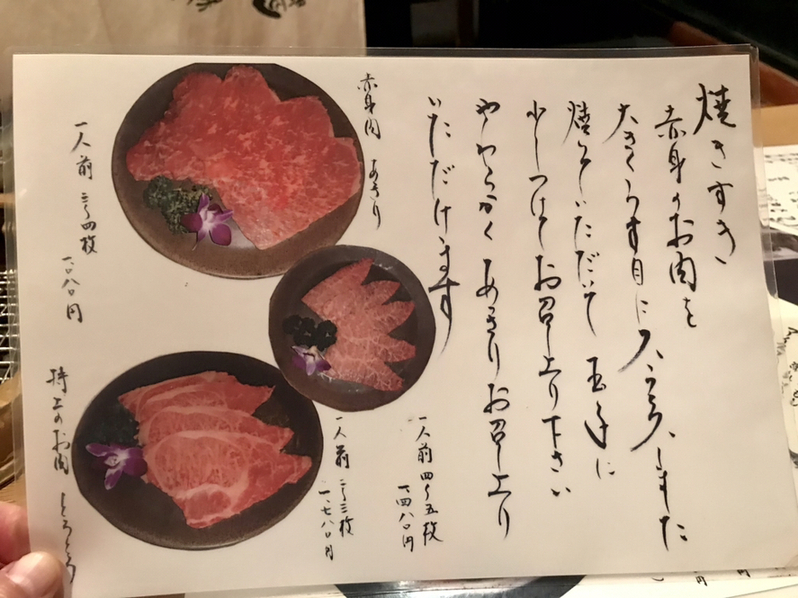 焼きすき
赤身のお肉を
大きくうす目にスライスしました
焼いていただいて 玉子に
少しつけてお召し上り下さい
やわらかく あっさりお召し上り
いただけます
赤身肉 あっさり
一人前 三〜四枚
一〇八〇円
一人前 四〜五枚
一四八〇円
一人前 二〜三枚
一、七八〇円
特上のお肉 とろとろ